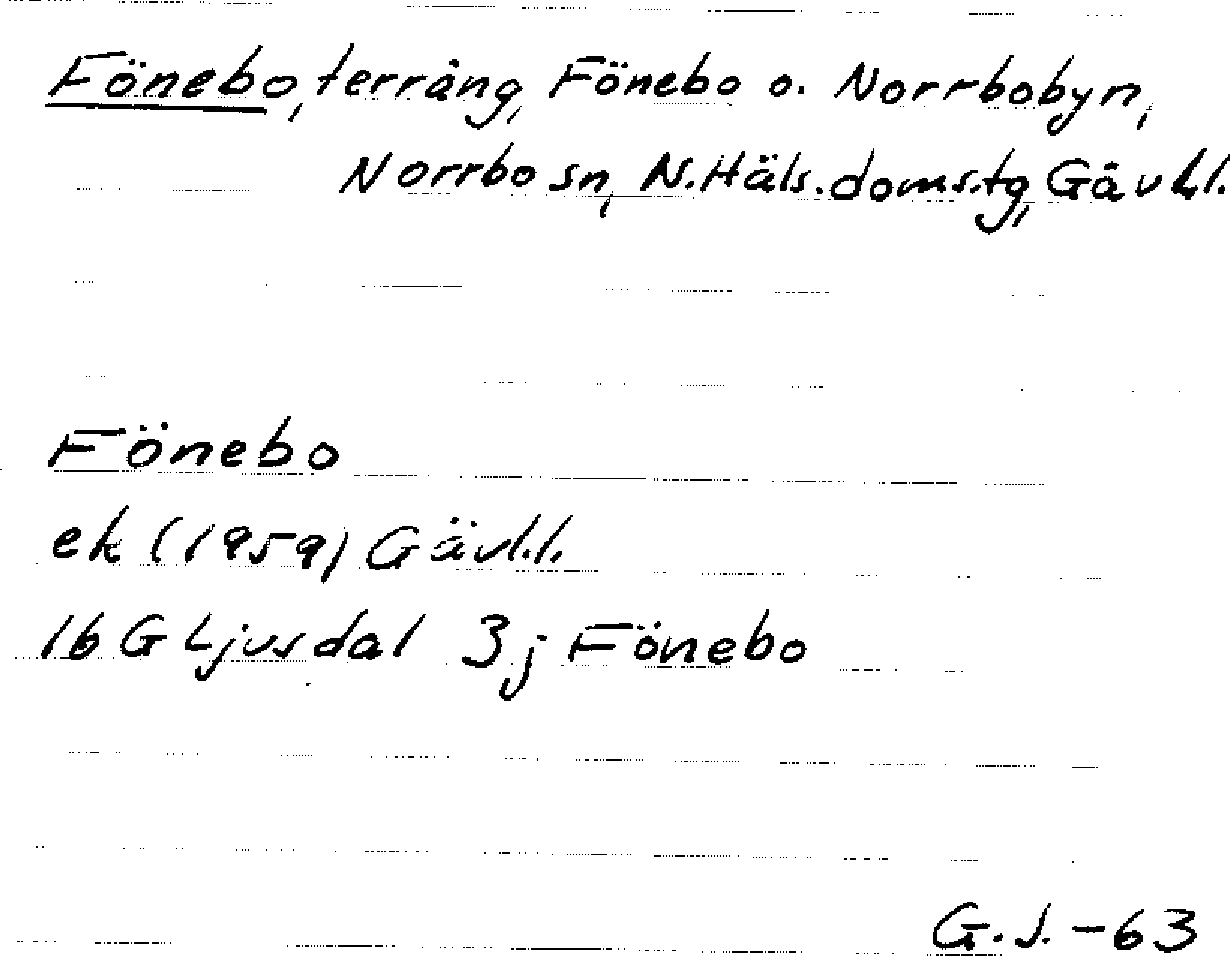 Fönebo, terräng, Fönebo o. Norrbobyn,
Norrbo sn, N. Häls. doms.tg, Gävl.l.
Fönebo
ek (1959) Gävl.l.
16 G Ljusdal 3j Fönebo
G.J. -63